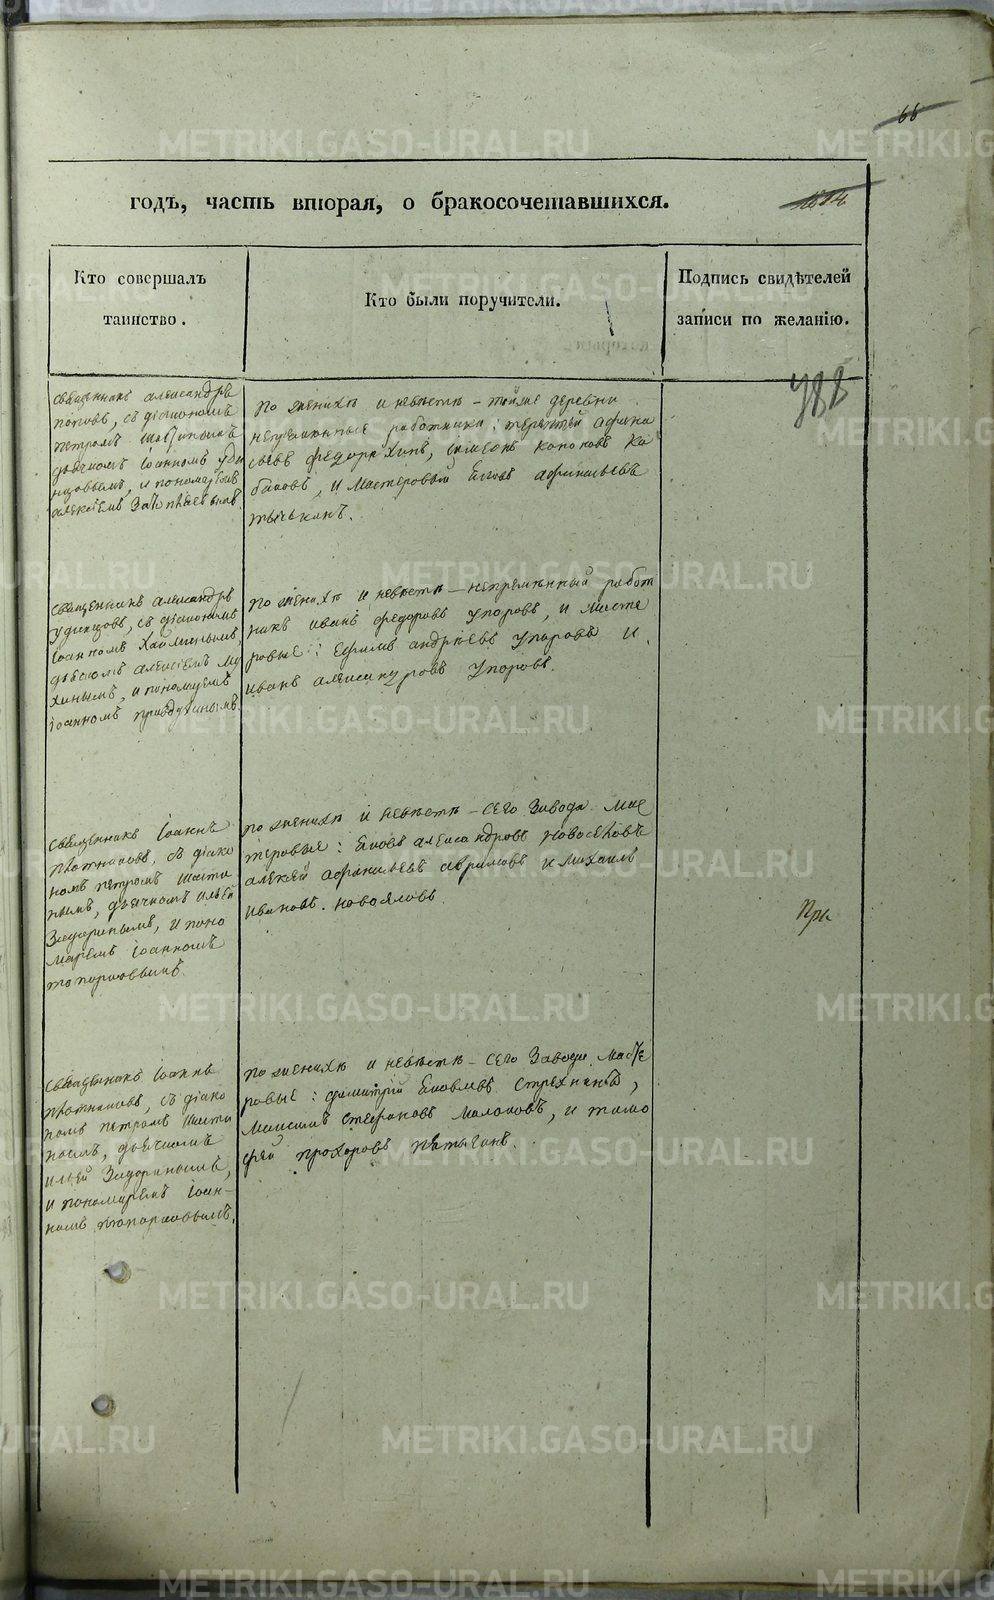 66
годъ, часть вторая, о бракосочетавшихся.
Кто совершалъ
таинство.
Кто были поручители.
Подпись свидѣтелей
записи по желанію.
788
священникъ александръ
поповъ, съ діакономъ
петромъ
дьячкомъ іоанномъ уди
нцовымъ, и пономаремъ
алексіемъ
по женихѣ и невѣстѣ – тойже деревни
непремѣнные работники: терентей афона
сьевъ федоро симеонъ кононовъ ка
баковъ, и мастеровый яковъ афонасьевъ
священникъ александръ
удинцовъ, съ діакономъ
іоанномъ
дьячкомъ алексіемъ му
хинымъ, и пономаремъ
іоанномъ
по женихѣ и невѣстѣ – непремѣнный работ
никъ иванъ федоровъ упоровъ, и масте
ровые: ефимъ андрѣевъ упоровъ и
иванъ упоровъ.
священникъ іоаннъ
плотниковъ, съ діако
номъ петромъ шисти
нымъ, дьячкомъ ильей
Задоринымъ, и поно
маремъ іоанномъ
топорковымъ.
по женихѣ и невѣстѣ – сего Завода мас
теровые: яковъ александровъ
алексѣй афонасьевъ и михаилъ
ивановъ.
При
священникъ іоаннъ
плотниковъ, съ діако
номъ петромъ шисти
нымъ, дьячкомъ
ильей Задоринымъ,
и пономаремъ іоан–
номъ топорковымъ.
по женихѣ и невѣстѣ – сего Завода масте
ровые: димитрій яковлевъ
максимъ стефановъ молоковъ, и тимо
фей прохоровъ пѣтыгинъ.
METRIKI.GASO-URAL.RU